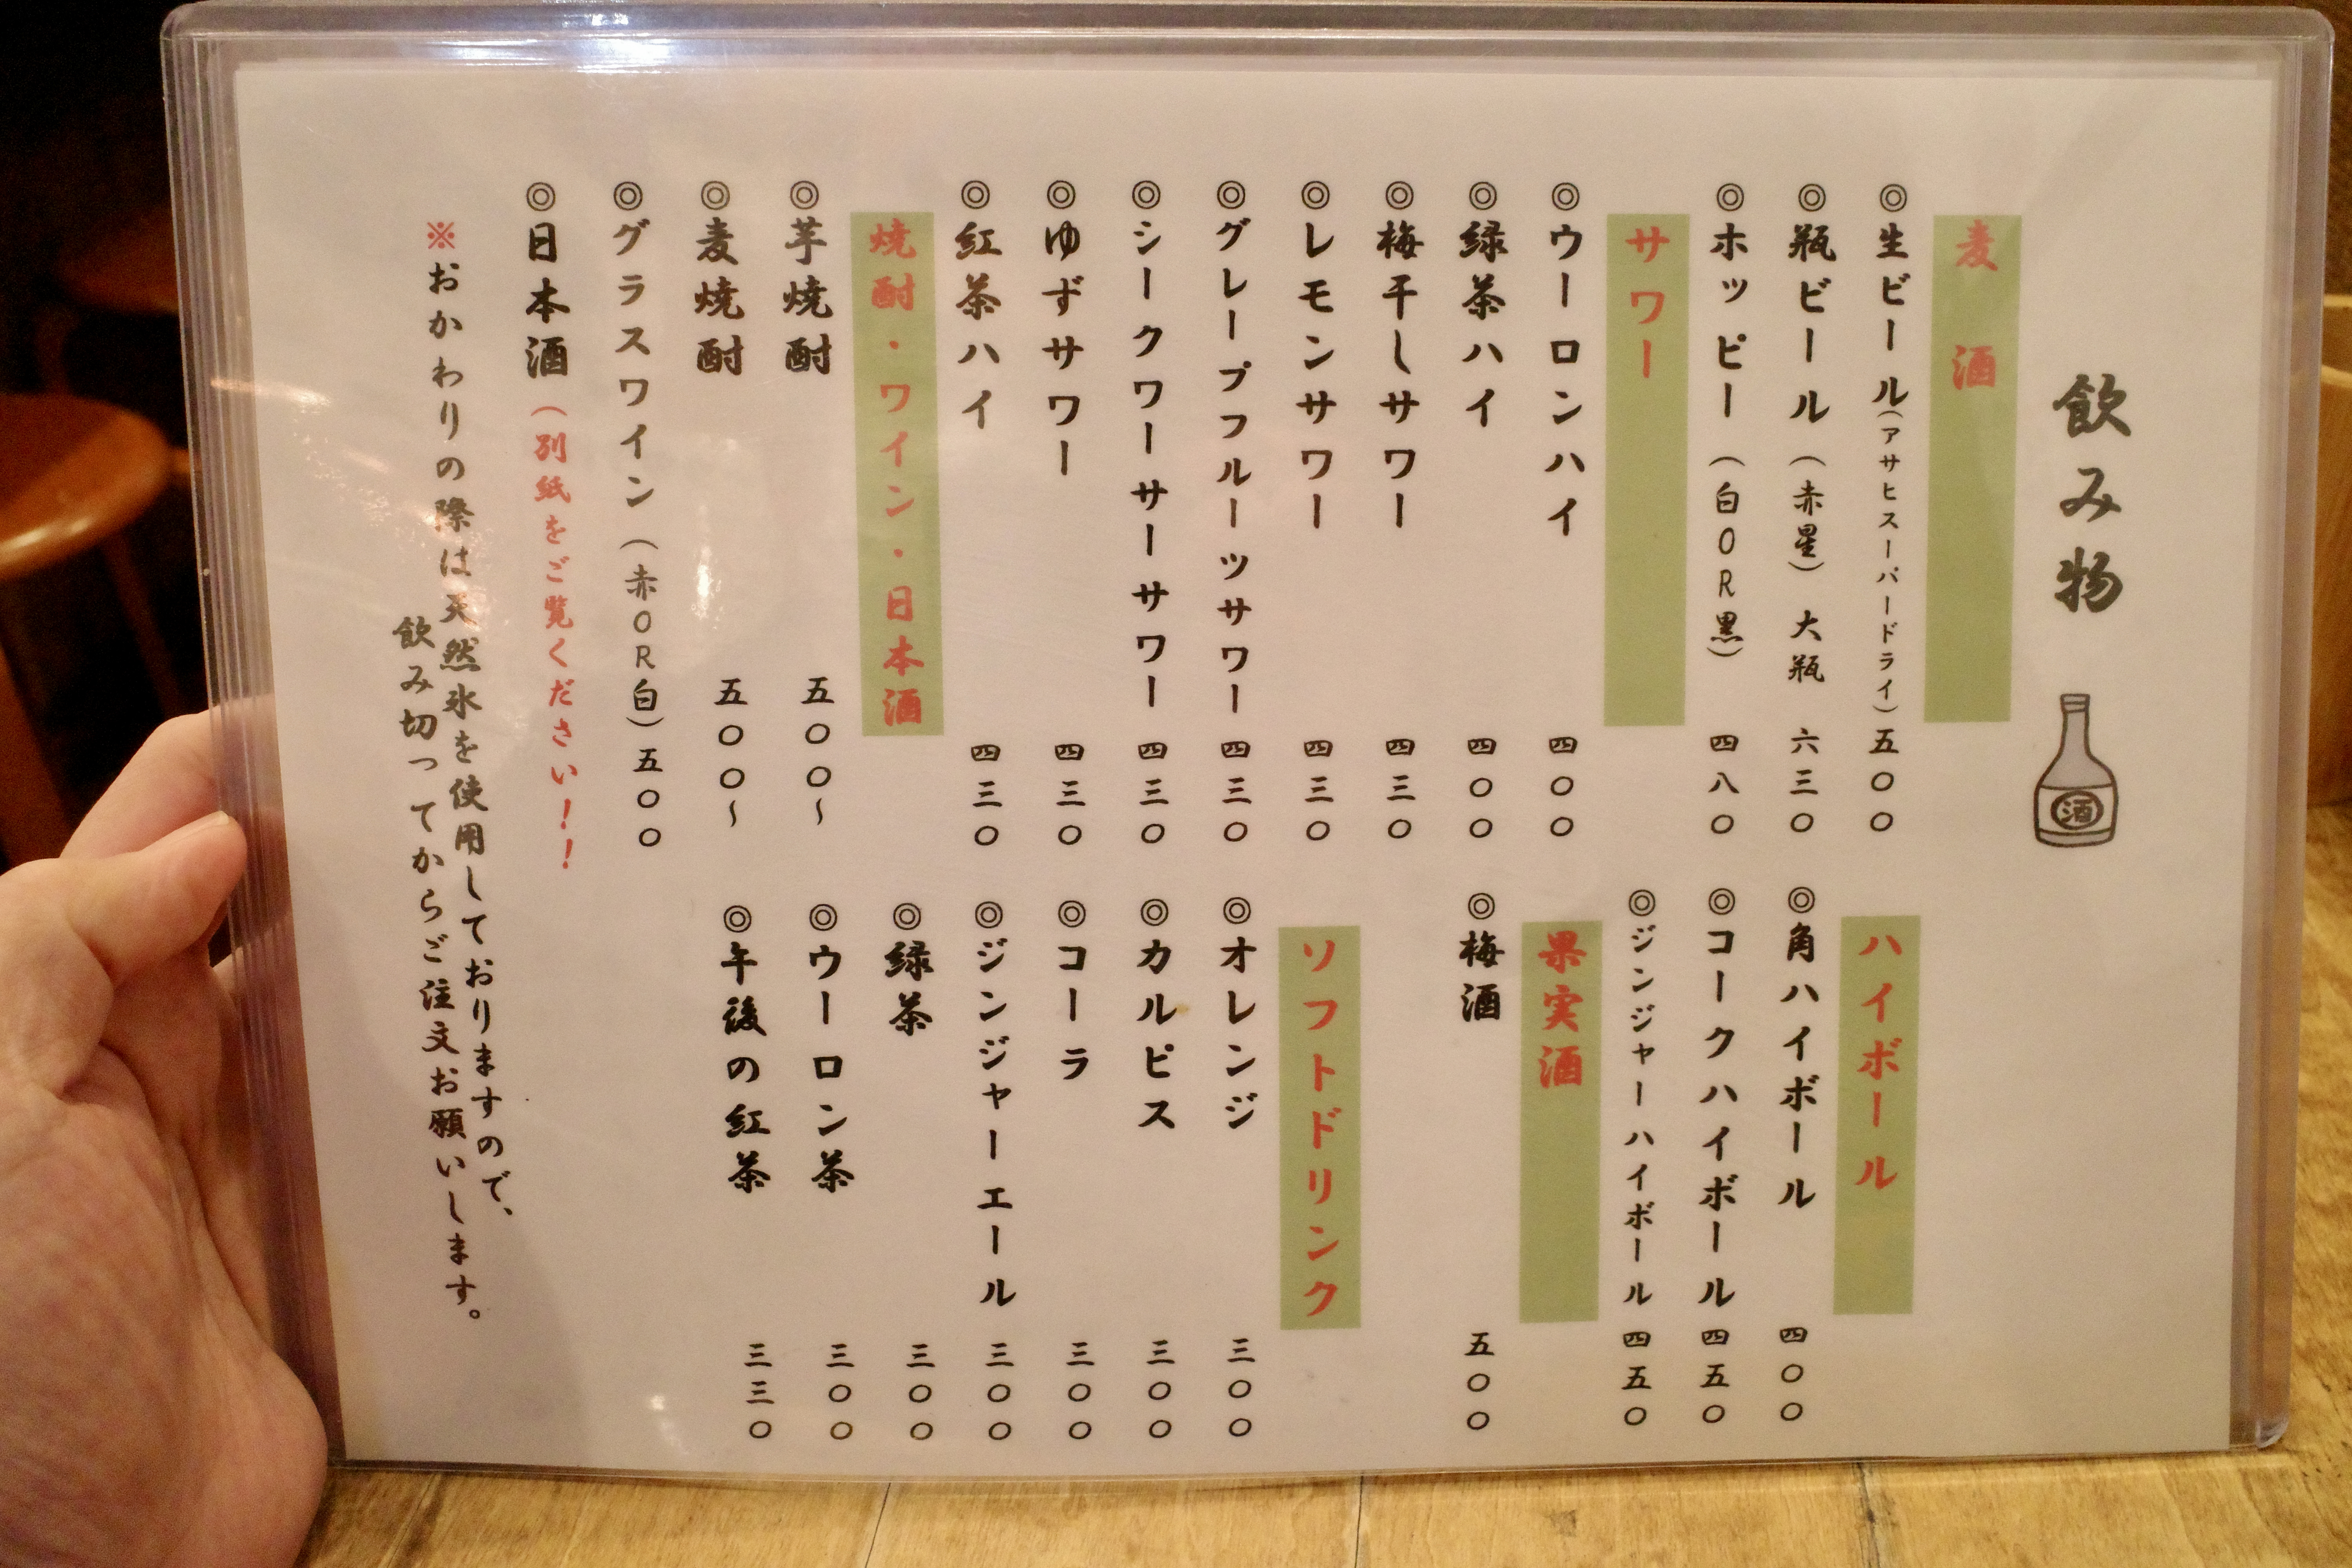 飲み物
酒
麦 酒
◎生ビール(アサヒスーパードライ)五〇〇
◎瓶ビール(赤星)大瓶 六三〇
◎ホッピー(白OR黒) 四八〇
サワー
◎ウーロンハイ 四〇〇
◎緑茶ハイ 四〇〇
◎梅干しサワー 四三〇
◎レモンサワー 四三〇
◎グレープフルーツサワー 四三〇
◎シークワーサーサワー 四三〇
◎ゆずサワー 四三〇
◎紅茶ハイ 四三〇
焼酎・ワイン・日本酒
◎芋焼酎 五〇〇~
◎麦焼酎 五〇〇~
◎グラスワイン(赤OR白)五〇〇
◎日本酒(別紙をご覧ください!!
ハイボール
◎角ハイボール 四〇〇
◎コークハイボール 四五〇
◎ジンジャーハイボール 四五〇
果実酒
◎梅酒 五〇〇
ソフトドリンク
◎オレンジ 三〇〇
◎カルピス 三〇〇
◎コーラ 三〇〇
◎ジンジャーエール 三〇〇
◎緑茶 三〇〇
◎ウーロン茶 三〇〇
◎午後の紅茶 三三〇
※おかわりの際は天然氷を使用しておりますので、
飲み切ってからご注文お願いします。